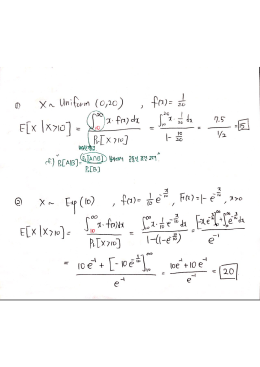 ① X ~ Uniform (0,20) , f(x) = 1/20
E[X|X>10] = ∫₁₀^20 x·f(x)dx / Pr[X>10] = ∫₁₀^20 x·1/20 dx / 1-10/20 = 7.5 / 1/2 = 15
cf) Pr[A|B] = Pr[A∩B] / Pr[B]
② X ~ Exp(10) , f(x) = 1/10 e^(-x/10) , F(x) = 1-e^(-x/10) , x>0
E[X|X>10] = ∫₁₀^∞ x·f(x)dx / Pr[X>10] = ∫₁₀^∞ x·1/10 e^(-x/10) dx / 1-(1-e^(-10/10)) = [-xe^(-x/10)]₁₀^∞ + ∫₁₀^∞ e^(-x/10) dx / e⁻¹
= 10e⁻¹ + [-10e^(-x/10)]₁₀^∞ / e⁻¹ = 10e⁻¹+10e⁻¹ / e⁻¹ = 20